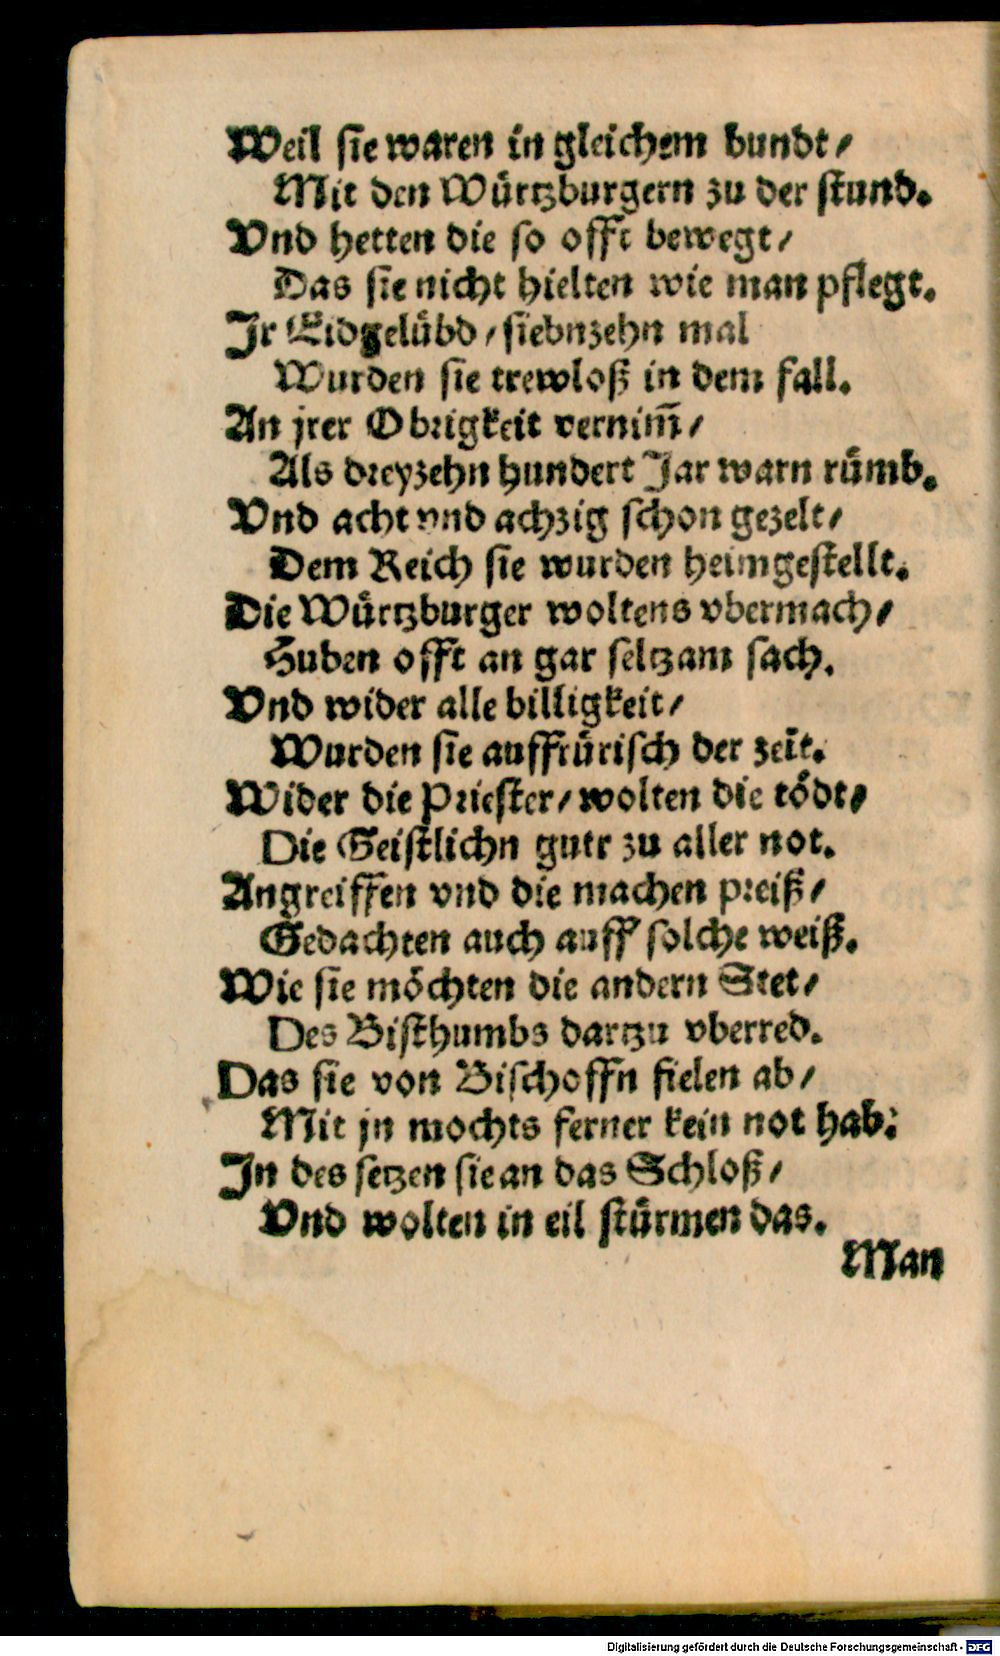 Weil sie waren in gleichem bundt/
Mit den Würtzburgern zu der stund.
Vnd hetten die so offt bewegt/
Das sie nicht hielten wie man pflegt.
Jr Eidgelübd/ siebnzehn mal
Wurden sie trewloß in dem fall.
An jrer Obrigkeit vernim̃/
Als dreyzehn hundert Jar warn rümb.
Vnd acht vnd achzig schon gezelt/
Dem Reich sie wurden heimgestellt.
Die Würtzburger woltens vbermach/
Huben offt an gar seltzam sach.
Vnd wider alle billigkeit/
Wurden sie auffrürisch der zeit.
Wider die Priester/ wolten die tödt/
Die Geistlichn gutr zu aller not.
Angreiffen vnd die machen preiß/
Gedachten auch auff solche weiß.
Wie sie möchten die andern Stet/
Des Bisthumbs dartzu vberred.
Das sie von Bischoffn fielen ab/
Mit jn mochts ferner kein not hab:
In des setzen sie an das Schloß/
Vnd wolten in eil stürmen das.
Man
Digitalisierung gefördert durch die Deutsche Forschungsgemeinschaft - DFG